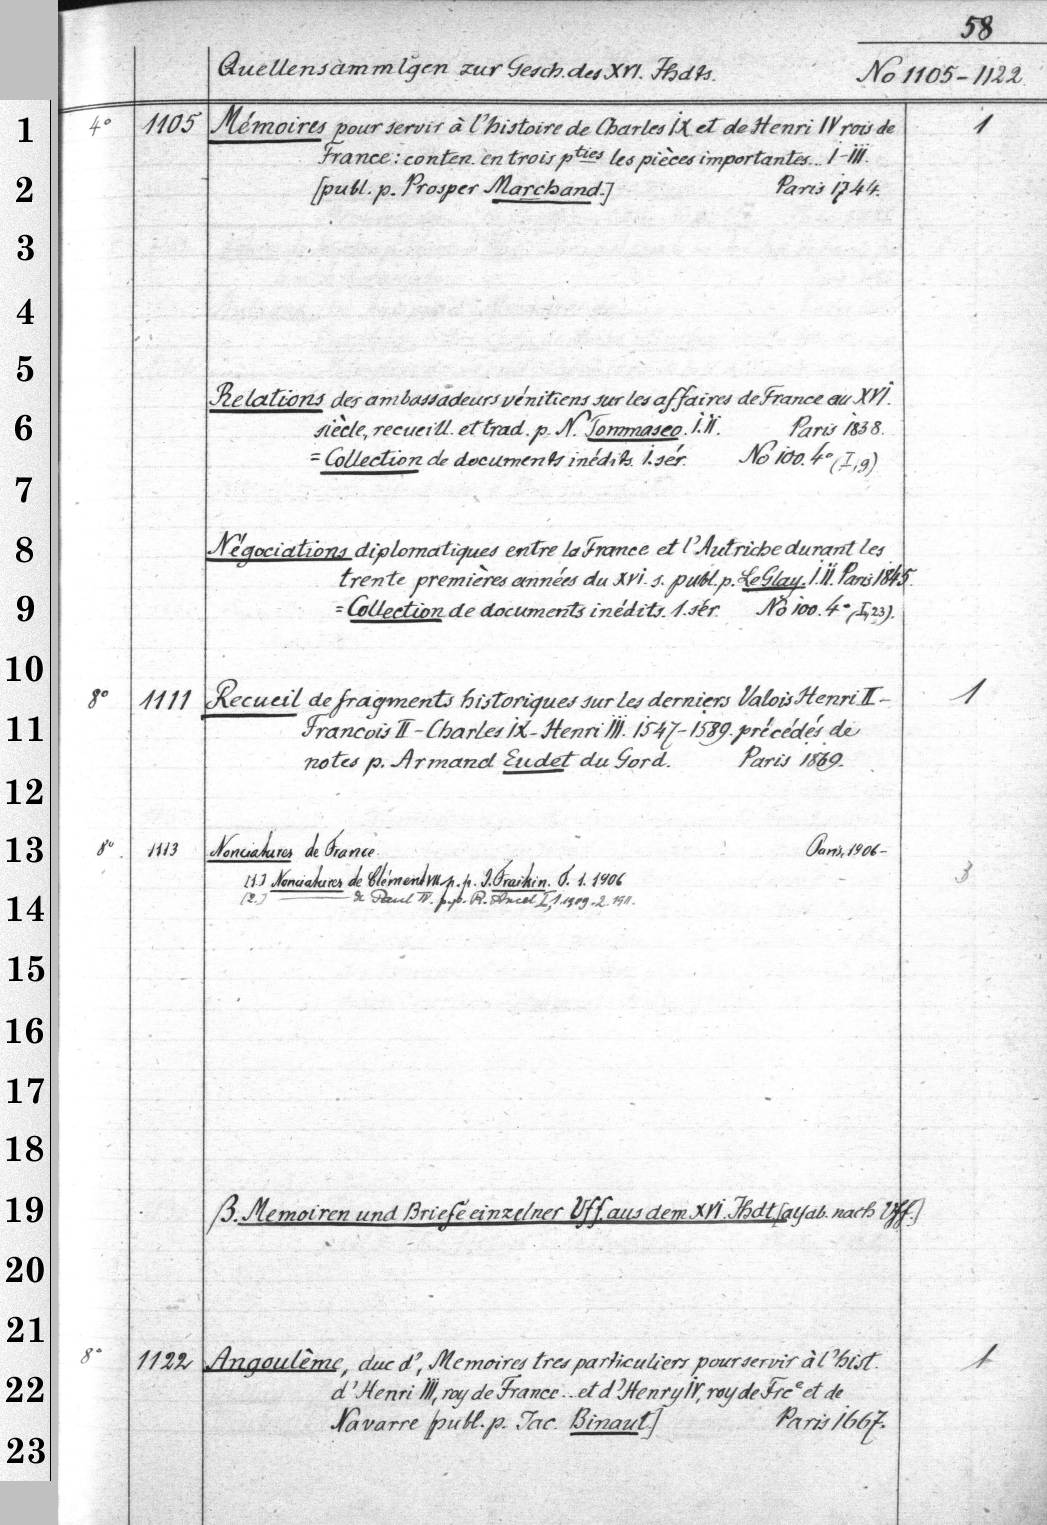 58
Quellensammlgen zur Gesch. des XVI. Jhdts. No 1105-1122
1 4° 1105 Mémoires pour servir à l'histoire de Charles IX et de Henri IV rois de 1
France: conten. en trois pties les pièces importantes... I-III.
2 [publ. p. Prosper Marchand.] Paris 1744.
3
4
5
Relations des ambassadeurs vénitiens sur les affaires de France au XVI.
6 siècle, recueill. et trad. p. N. Tommaseo. I.II. Paris 1838.
= Collection de documents inédits. I. sér. No 100. 4° (I,9)
7
8 Négociations diplomatiques entre la France et l'Autriche durant les
trente premières années du XVI. s. publ. p. Le Glay. I.II. Paris 1845.
9 = Collection de documents inédits. 1. sér. No 100. 4° (I,23).
10
8° 1111 Recueil de fragments historiques sur les derniers Valois Henri II- 1
11 Francois II - Charles IX - Henri III. 1547-1589. précédés de
notes p. Armand Eudet du Gord. Paris 1869.
12
13 8°. 1113 Nonciatures de France. Paris, 1906-
[1.] Nonciatures de Clément VII. p. p. J. Fraikin. T. 1. 1906 3
14 [2.] de Paul IV. p. p. R. Ancel I,1.1909-2.1911.
15
16
17
18
19 B. Memoiren und Briefe einzelner Vff. aus dem XVI. Jhdt. [alfab. nach Vff.]
20
21
8° 1122 Angoulême, duc d', Memoires tres particuliers pour servir à l'hist. 1
22 d'Henri III, roy de France... et d'Henry IV, roy de Frce et de
Navarre [publ. p. Jac. Binaut] Paris 1667.
23